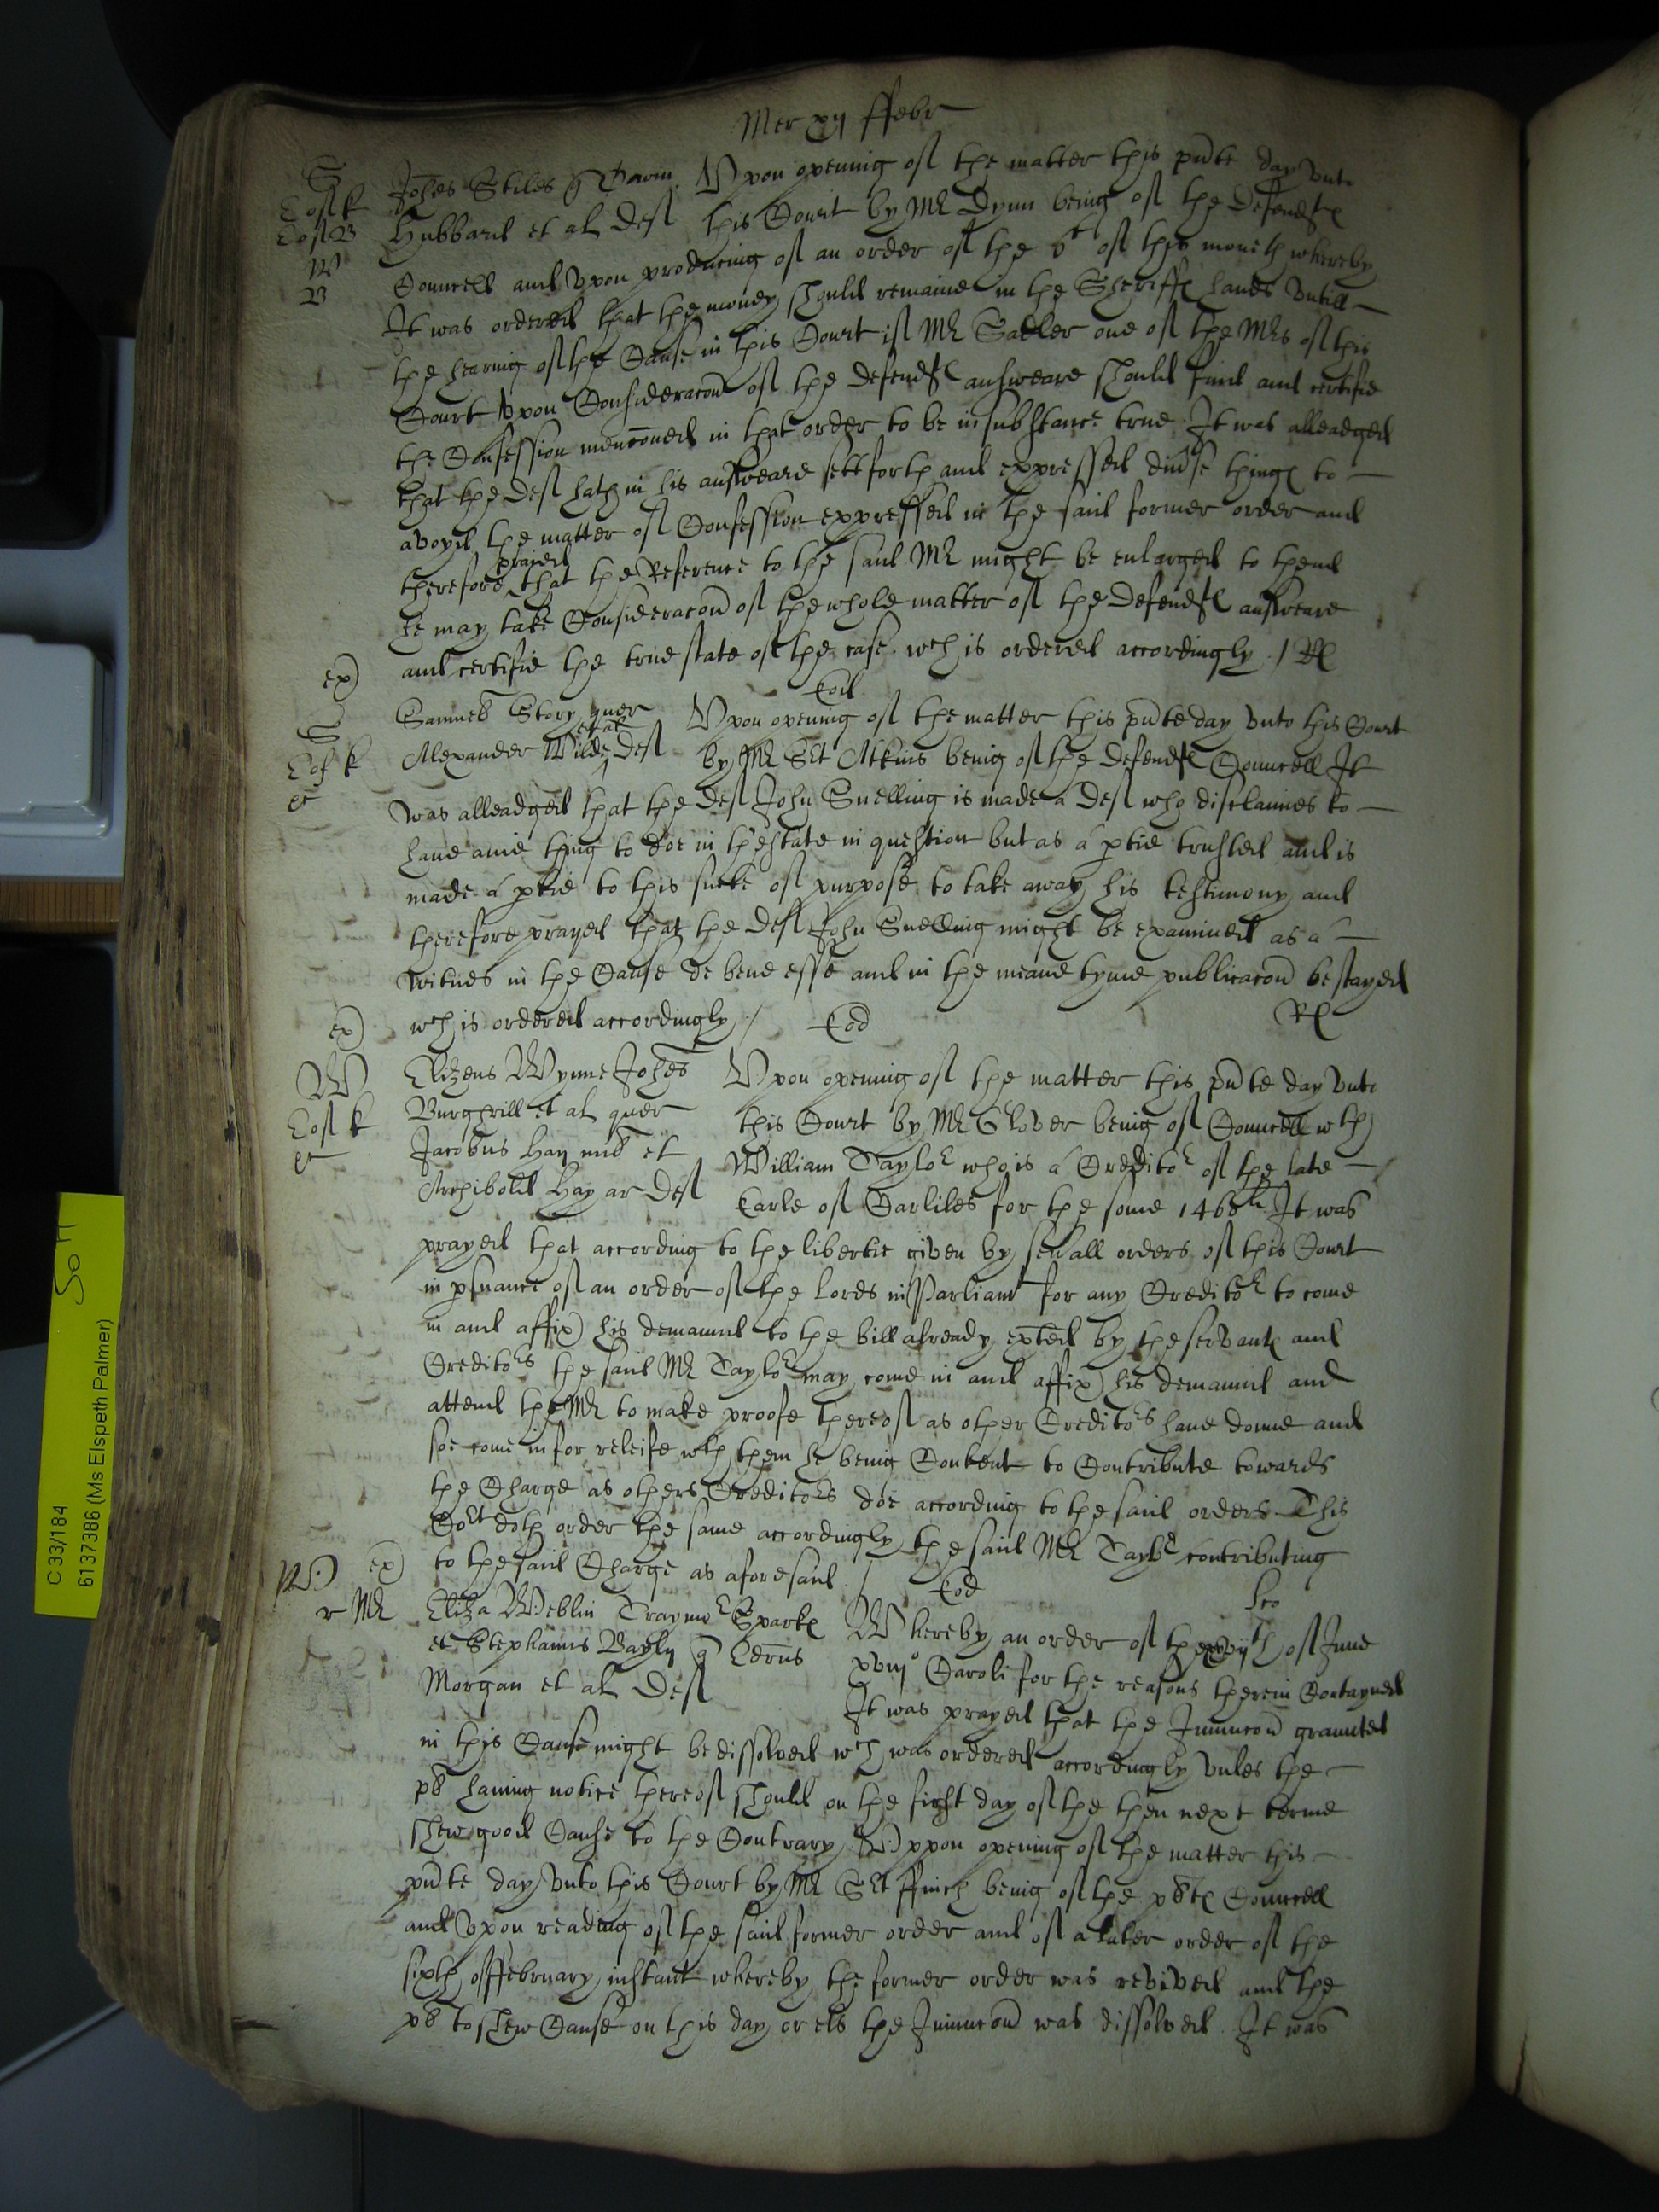 Mer xij ffebr
S
Johes Stiles q Edwin Upon opening of the matter this pnte day unto
Cos k
Hubbard et al Def this Court by Mr Dynn being of the Defendts
Cos B
Councell and upon producing of an order of the vt of this moneth whereby
It was ordered that the money should remaine in the Sheriffs hands untill
the hearing of the Cause in this Court if Mr Sadler one of the Mrs of this
Court upon Consideracon of the Defendts answeare should find and certifie
the Confession menconed in that order to be in substance true It was alleadged
that the Def hath in his answeare sett forth and expressed divse things to
avoyd the matter of Confession expressed in the said former order and
therefore prayed that the Reference to the said Mr might be enlarged to thend
he may take Consideracon of the whole matter of the Defendts answeare
and certifie the true state of the case wch is ordered accordingly / Rl
ex
Eod
S
Samuel Story quer Upon opening of the matter this pnte day unto this Court
Cos k
Alexander Wilde et al Def by Mr Srt Atkins being of the Defendts Councell It
et
was alleadged that the Def John Snelling is made a Def who disclaimes to
have anie thing to doe in thestate in question but as a ptie trusted and is
made a ptie to this suite of purpose to take away his testimony and
therefore prayed that the Def John Snelling might be examined as a
witnes in the Cause de bene esse and in the meane tyme publicacon be stayed
ex
wch is ordered accordingly / Eod Rl
W
Elizeus Wynne Johes Upon opening of the matter this pnte day unto
Cos k
Burghill et al quer this Court by Mr Glover being of Councell wth
et
Jacobus Hay mil et William Taylor who is a Creditor of the late
Archibold Hay ar Def Earle of Carliles for the some 1468li It was
prayed that according to the libertie given by sevall orders of this Court
in psuance of an order of the Lords in Parliamt for any Creditor to come
in and affix his demaund to the bill already exted by the servants and
Creditors the said Mr Taylor may come in and affix his demaund and
attend the Mr to make proofe thereof as other Creditors have donne and
soe come in for releife wth them he being Content to Contribute towards
the Charge as others Creditors doe according to the said orders This
Cort doth order the same accordingly the said Mr Taylor contributing
ex
to the said Charge as aforesaid / Eod
W
r Mr
Eliza Weblin Traymor Sparks Whereby an order of the xxvijth of June
et Stephanus Bayly q Edrus xviijo Caroli for the reasons therein Contayned
Morgan et al Def It was prayed that the Injunccon graunted
in this Cause might be dissolved wch was ordered accordingly unles the
pl having notice thereof should on the first day of the then next terme
shew good Cause to the Contrary Uppon opening of the matter this
pnte day unto this Court by Mr Srt ffinch being of the pltfs Councell
and upon reading of the said former order and of a later order of the
sixth of ffebruary instant whereby the former order was revived and the
pl to shew Cause on this day or els the Injunccon was dissolved It was
C 33/184
6137386 (Ms Elspeth Palmer)